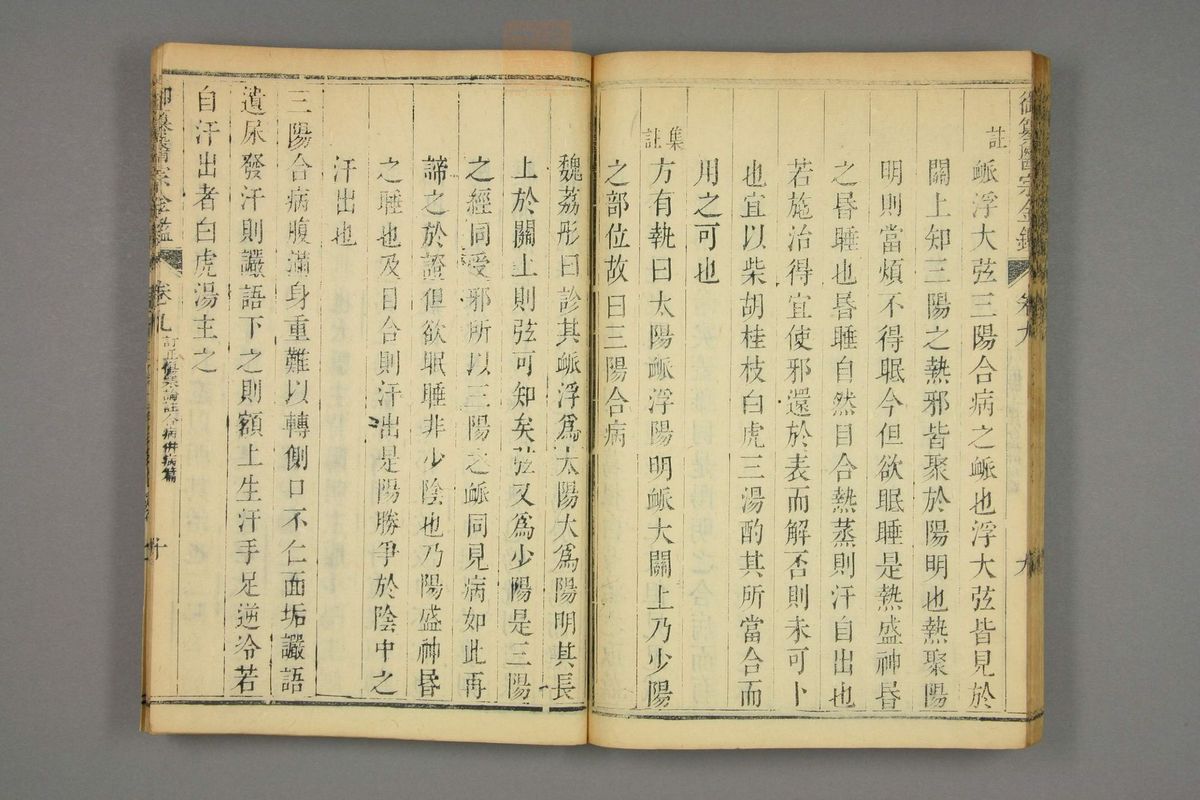 御纂醫宗金鑑 卷九 九
註
脈浮大弦三陽合病之脈也浮大弦皆見於
關上知三陽之熱邪皆聚於陽明也熱聚陽
明則當煩不得眠今但欲眠睡是熱盛神昏
之昏睡也昏睡自然目合熱蒸則汗自出也
若施治得宜使邪還於表而解否則未可卜
也宜以柴胡桂枝白虎三湯酌其所當合而
用之可也
集註
方有執曰太陽脈浮陽明脈大關上乃少陽
之部位故曰三陽合病
魏荔彤曰診其脈浮爲太陽大爲陽明其長
上於關上則弦可知矣弦又爲少陽是三陽
之經同受邪所以三陽之脈同見病如此再
諦之於證但欲眠睡非少陰也乃陽盛神昏
之睡也及目合則汗出是陽勝爭於陰中之
汗出也
三陽合病腹滿身重難以轉側口不仁面垢讝語
遺尿發汗則讝語下之則額上生汗手足逆冷若
自汗出者白虎湯主之
御纂醫宗金鑑 卷九 訂正傷寒論註合病併病篇 十